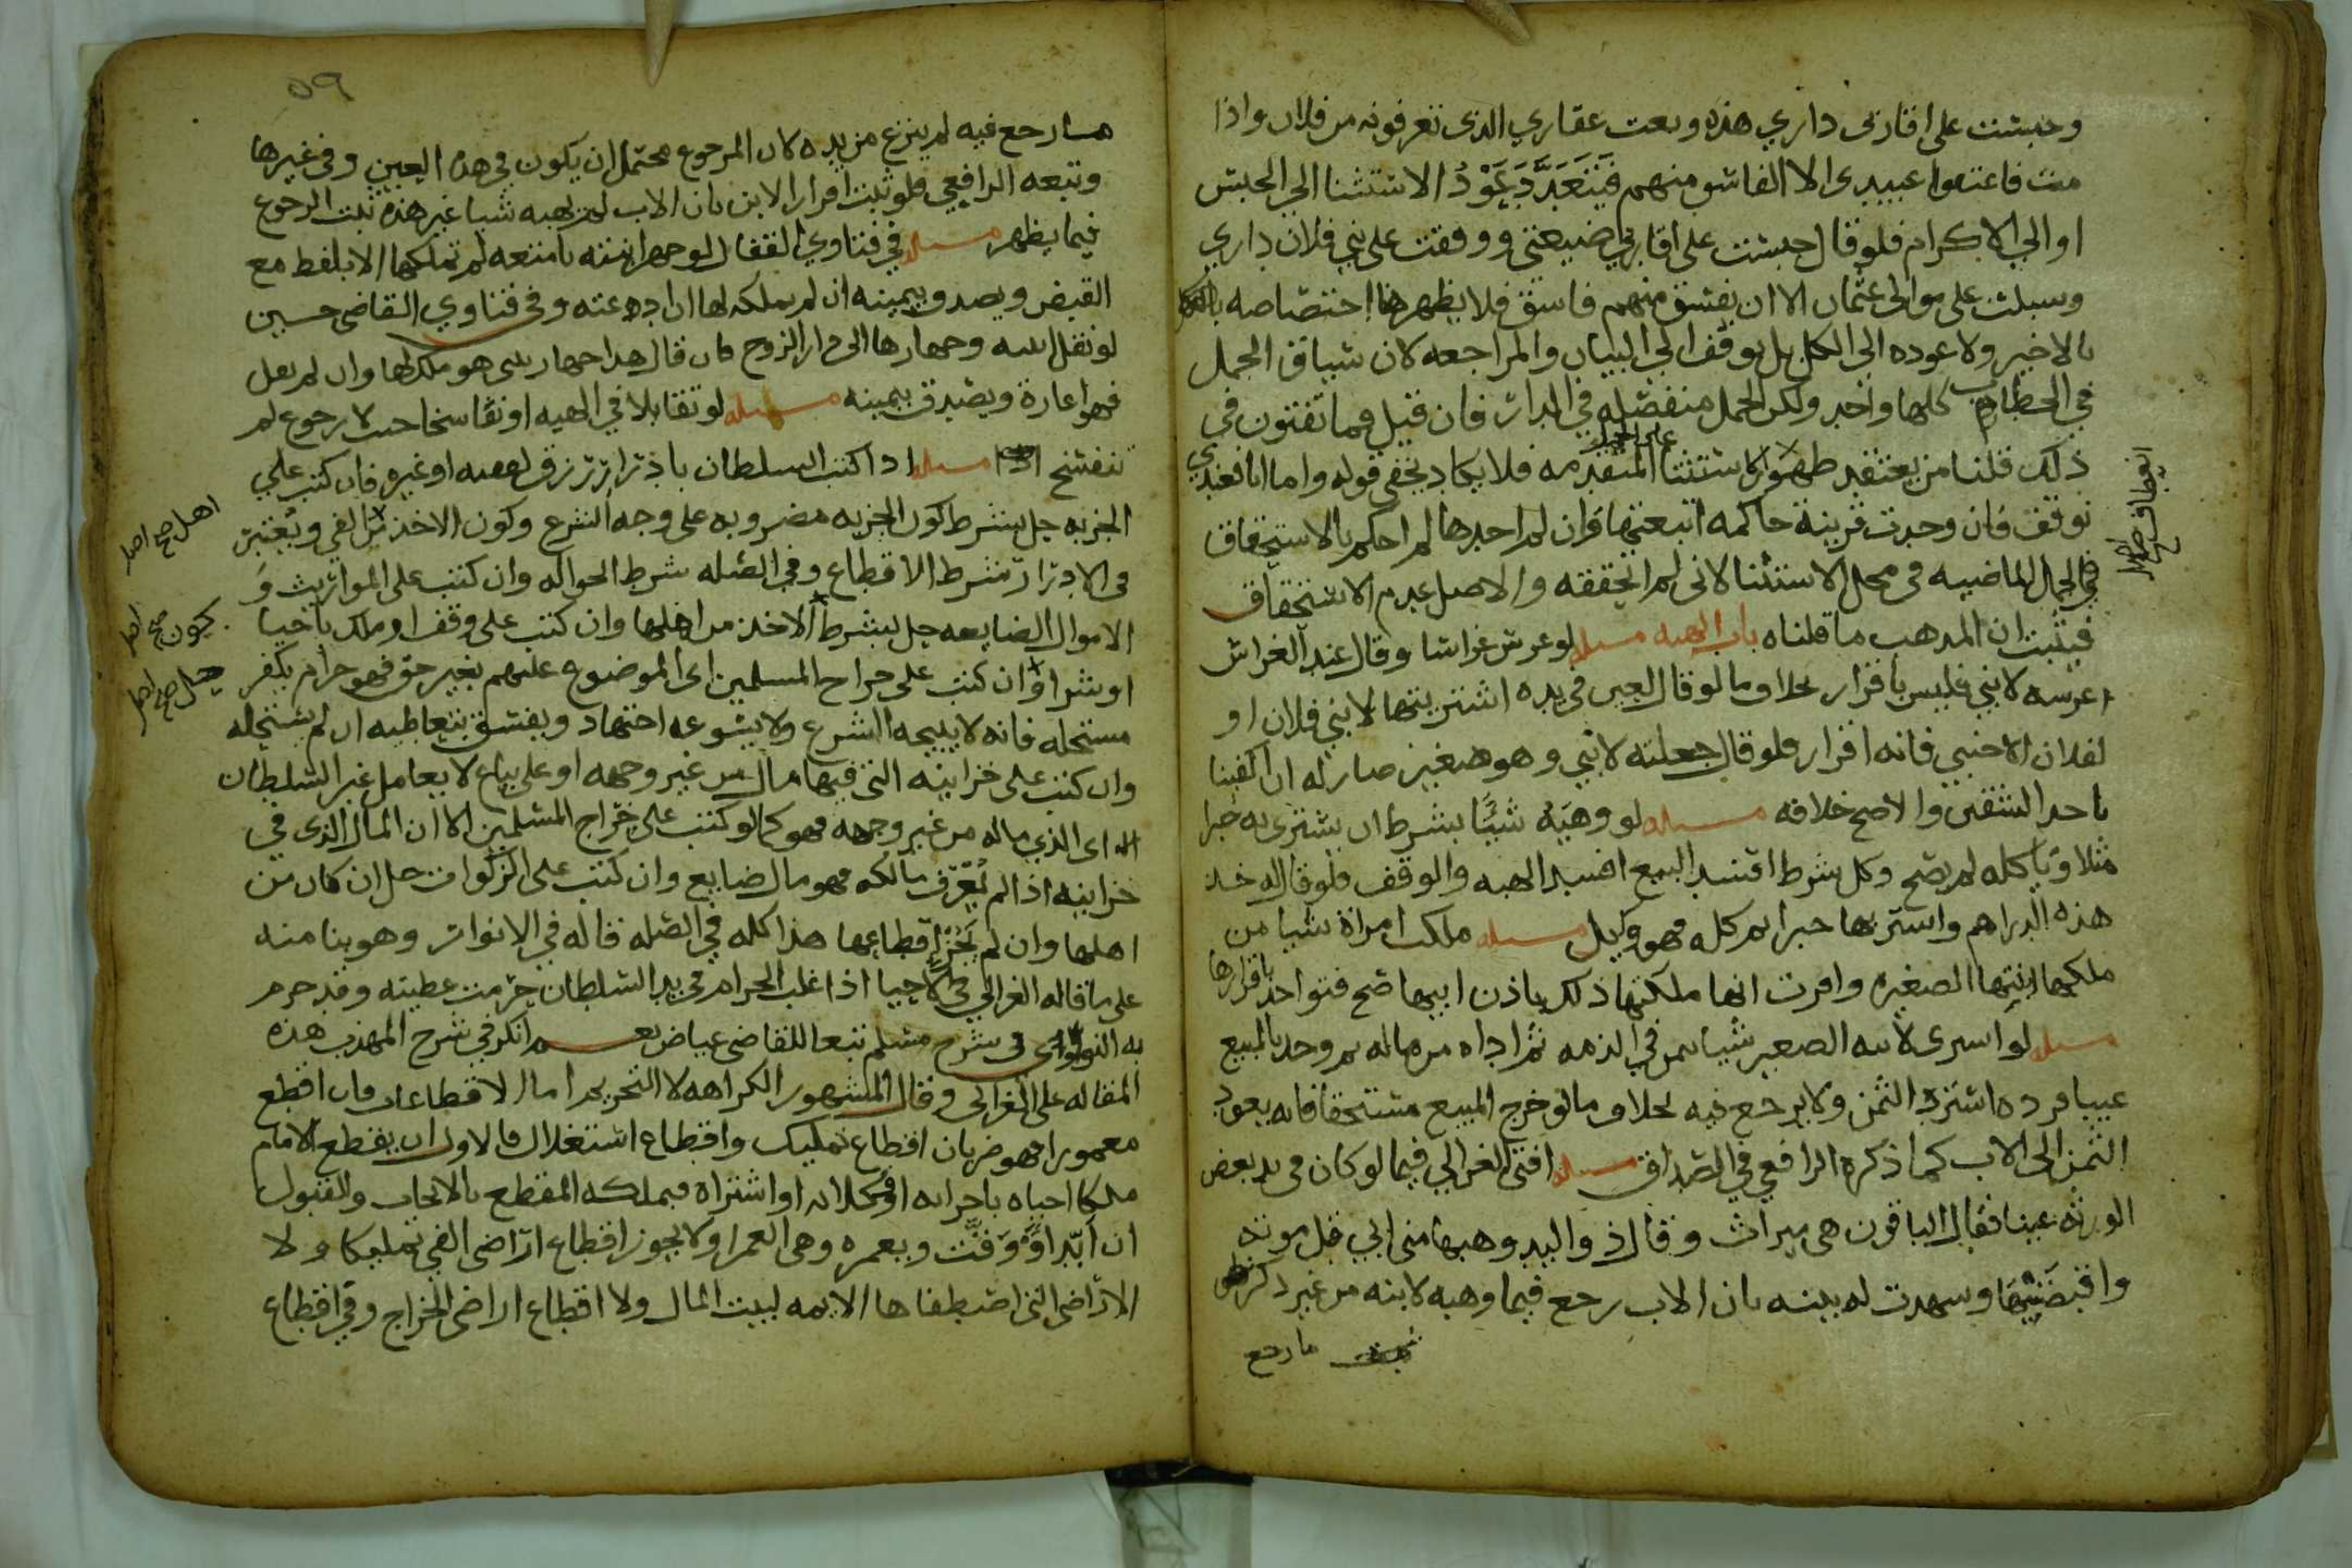 وحبست على اقاربى داري هذه وبعت عقاري الذى تعرفونه من فلان واذا
مت فاعتقوا عبيدى الا الفاسق منهم فيبعد عود الاستثنا الي الحبس
او الي الاكرام فلو قال حبست على اقاربي ضيعتى ووقفت على بني فلان داري
وسبلت على موالى عثمان الا ان يفسق منهم فاسق فلا يظهر اختصاصه
بالاخير ولا عوده الى الكل بل يوقف الى البيان والمراجعه لان سياق الجمل
في الخطاب كلها واحد ولكن الجمل منفصله في الدار فان قيل فما تفتون في
ذلك قلنا من يعتقد ظهور الاستثنا المتقدمه فلا يكاد يخفى قوله واما انا فعندي
توقف فان وجدت قرينة حاكمه اتبعتها فان لم اجدها لم احكم بالاستحقاق
في الجمل الماضيه فى محل الاستثنا لانى لم اتحققه والاصل عدم الاستحقاق
فيثبت ان المذهب ما قلناه باب الهبه مسله لو غرس غراسا وقال عند الغراس
اغرسه لابني فليس باقرار بخلاف ما لو قال لعين فى يده اشتريتها لابني فلان او
لفلان الاجنبي فانه اقرار فلو قال جعلته لابني وهو صغير صار له ان اكتفينا
باحد الشقين والاصح خلافه مسله لو وهبه شيئا بشرط ان يشترى به خبزا
مثلا وياكله لم يصح وكل شرط افسد البيع افسد الهبه والوقف فلو قال له خذ
هذه الدراهم واشتر بها خبزا ثم كله فهو وكيل مسله ملكت امراة شيا من
ملكها ابنتها الصغيره واقرت انها ملكتها ذلك باذن ابيها صح فتواخذ باقرارها
مسله لو اشترى لابنه الصغير شيا بثمن في الذمه ثم اداه من ماله ثم وجد بالمبيع
عيبا فرده استرد الثمن ولا يرجع فيه بخلاف ما لو خرج المبيع مستحقا فانه يعود
الثمن الى الاب كما ذكره الرافعي في الصداق مسله افتى الغزالي فيما لو كان فى يد بعض
الورثه عينا فقال الباقون هى ميراث وقال ذو اليد وهبها منى ابي قبل موته
واقبضنيها وشهدت له بينه بان الاب رجع فيما وهبه لابنه من غير ذكر
ما رجع
انعطاف
٥٩
ما رجع فيه لم ينزع من يده لان المرجوع محتمل ان يكون في هذه العين وفى غيرها
وتبعه الرافعي فلو ثبت اقرار الابن بان الاب لم يهبه شيا غير هذه ثبت الرجوع
فيما يظهر مسله في فتاوي القفال لو جهز ابنته بامتعه لم تملكها الا بلفظ مع
القبض ويصدق بيمينه ان لم يملكه لها ان ادعته وفى فتاوي القاضى حسين
لو نقل ابنته وجهازها الى دار الزوج فان قال هذا جهاز بنتى فهو ملك لها وان لم يقل
فهو اعارة ويصدق بيمينه مسله لو تقايلا في الهبه او تفاسخا حيث لا رجوع لم
تنفسخ مسله اذا كتب السلطان بادرار رزق لفقيه او غيره فان كتب علي
الجزيه حل بشرط كون الجزيه مضروبه على وجه الشرع وكون الاخذ من الفي ويعتبر
فى الادرار شرط الاقطاع وفي الصله شرط الحواله وان كتب على المواريث و
الاموال الضايعه حل بشرط الاخذ من اهلها وان كتب على وقف او ملك باحيا
او شرا وان كتب على خراج المسلمين اى الموضوع عليهم بغير حق فهو حرام يكفر
مستحله فانه لا يبيحه الشرع ولا يسوغه اجتهاد ويفسق بتعاطيه ان لم يستحله
وان كتب على خزاينه التى فيها مال من غير وجهه او على بياع لا يعامل غير السلطان
اى الذي ماله من غير وجهه فهو كما لو كتب على خراج المسلمين الا ان المال الذى في
خزاينه اذا لم يعرف مالكه فهو مال ضايع وان كتب على الزكوات حل ان كان من
اهلها وان لم يجز اقطاعها هذا كله في الصله قاله في الانوار وهو بنا منه
على ما قاله الغزالي في الاحيا اذا غلب الحرام في يد السلطان حرمت عطيته وقد جرم
به النووى فى شرح مسلم تبعا للقاضى عياض نعم انكر في شرح المهذب هذه
المقاله على الغزالى وقال المشهور الكراهه لا التحريم اما الاقطاعات فان اقطع
معمورا فهو ضربان اقطاع تمليك واقطاع استغلال فالاول ان يقطع الامام
ملكا احياه باجرايه او وكلايه او اشتراه فيملكه المقطع بالايجاب والقبول
ان ابد او وقت وبعمره وهى العمرا ولا يجوز اقطاع اراضى الفي تمليكا ولا
الاراضى التى اصطفاها الايمه لبيت المال ولا اقطاع اراضى الخراج وفي اقطاع
اهل صح اصل
يكون صح اصل
حل صح اصل